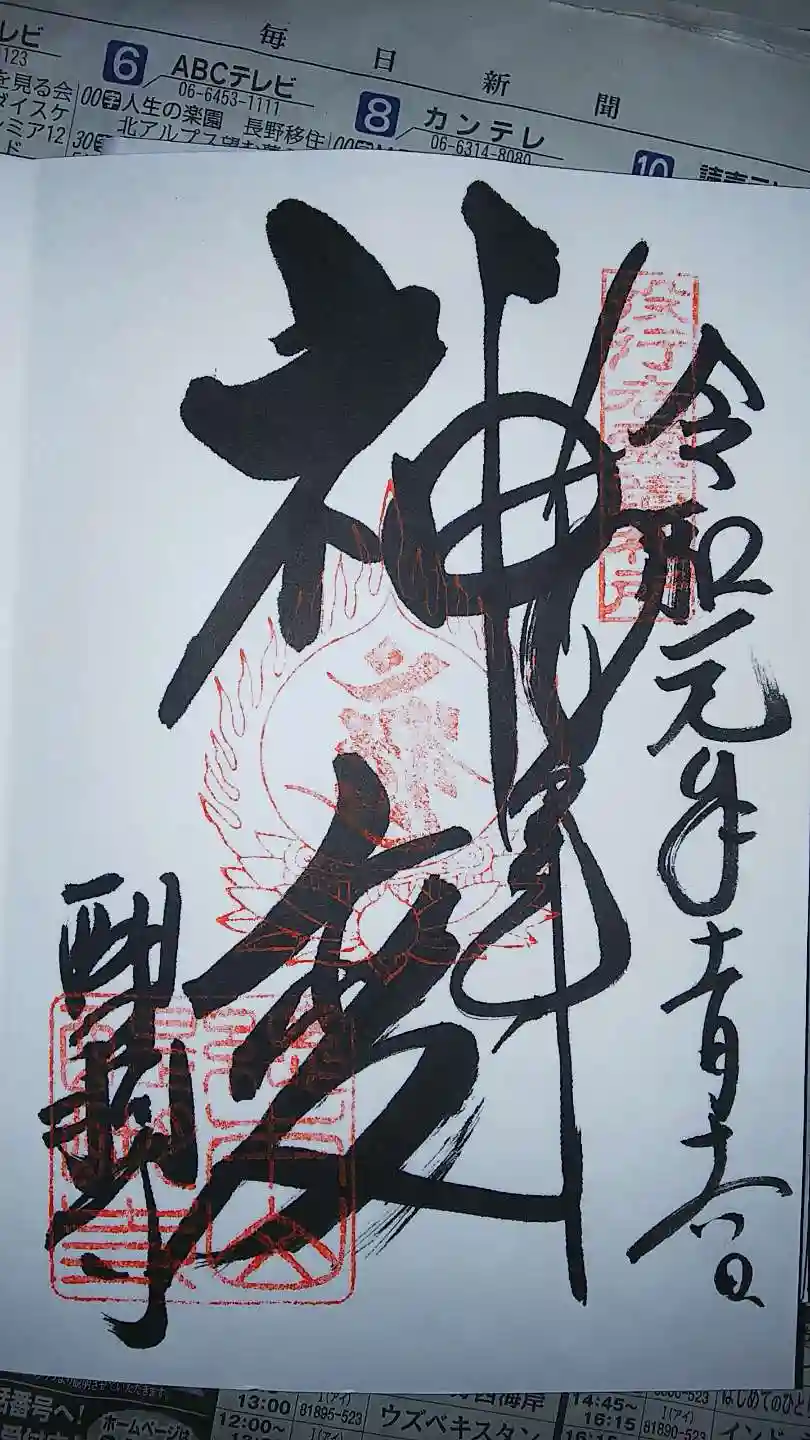 毎日新聞
レビ
123
6 ABCテレビ
06-6453-1111
8 カンテレ
06-6314-8080
10 読売テレ
を見る会
ダイスケ
レミア12
ド
00 字 人生の楽園 長野移住
30
北アルプス望
00
役行者霊蹟札所
令和元年十一月十六日
神變
醍醐寺
話番号へ!
ホームページは
13:00
12:00~
I(アイ)
81895-523
ウズベキスタン
14:45~
16:15
I(アイ)
81890-523
はじめてのひと
インド